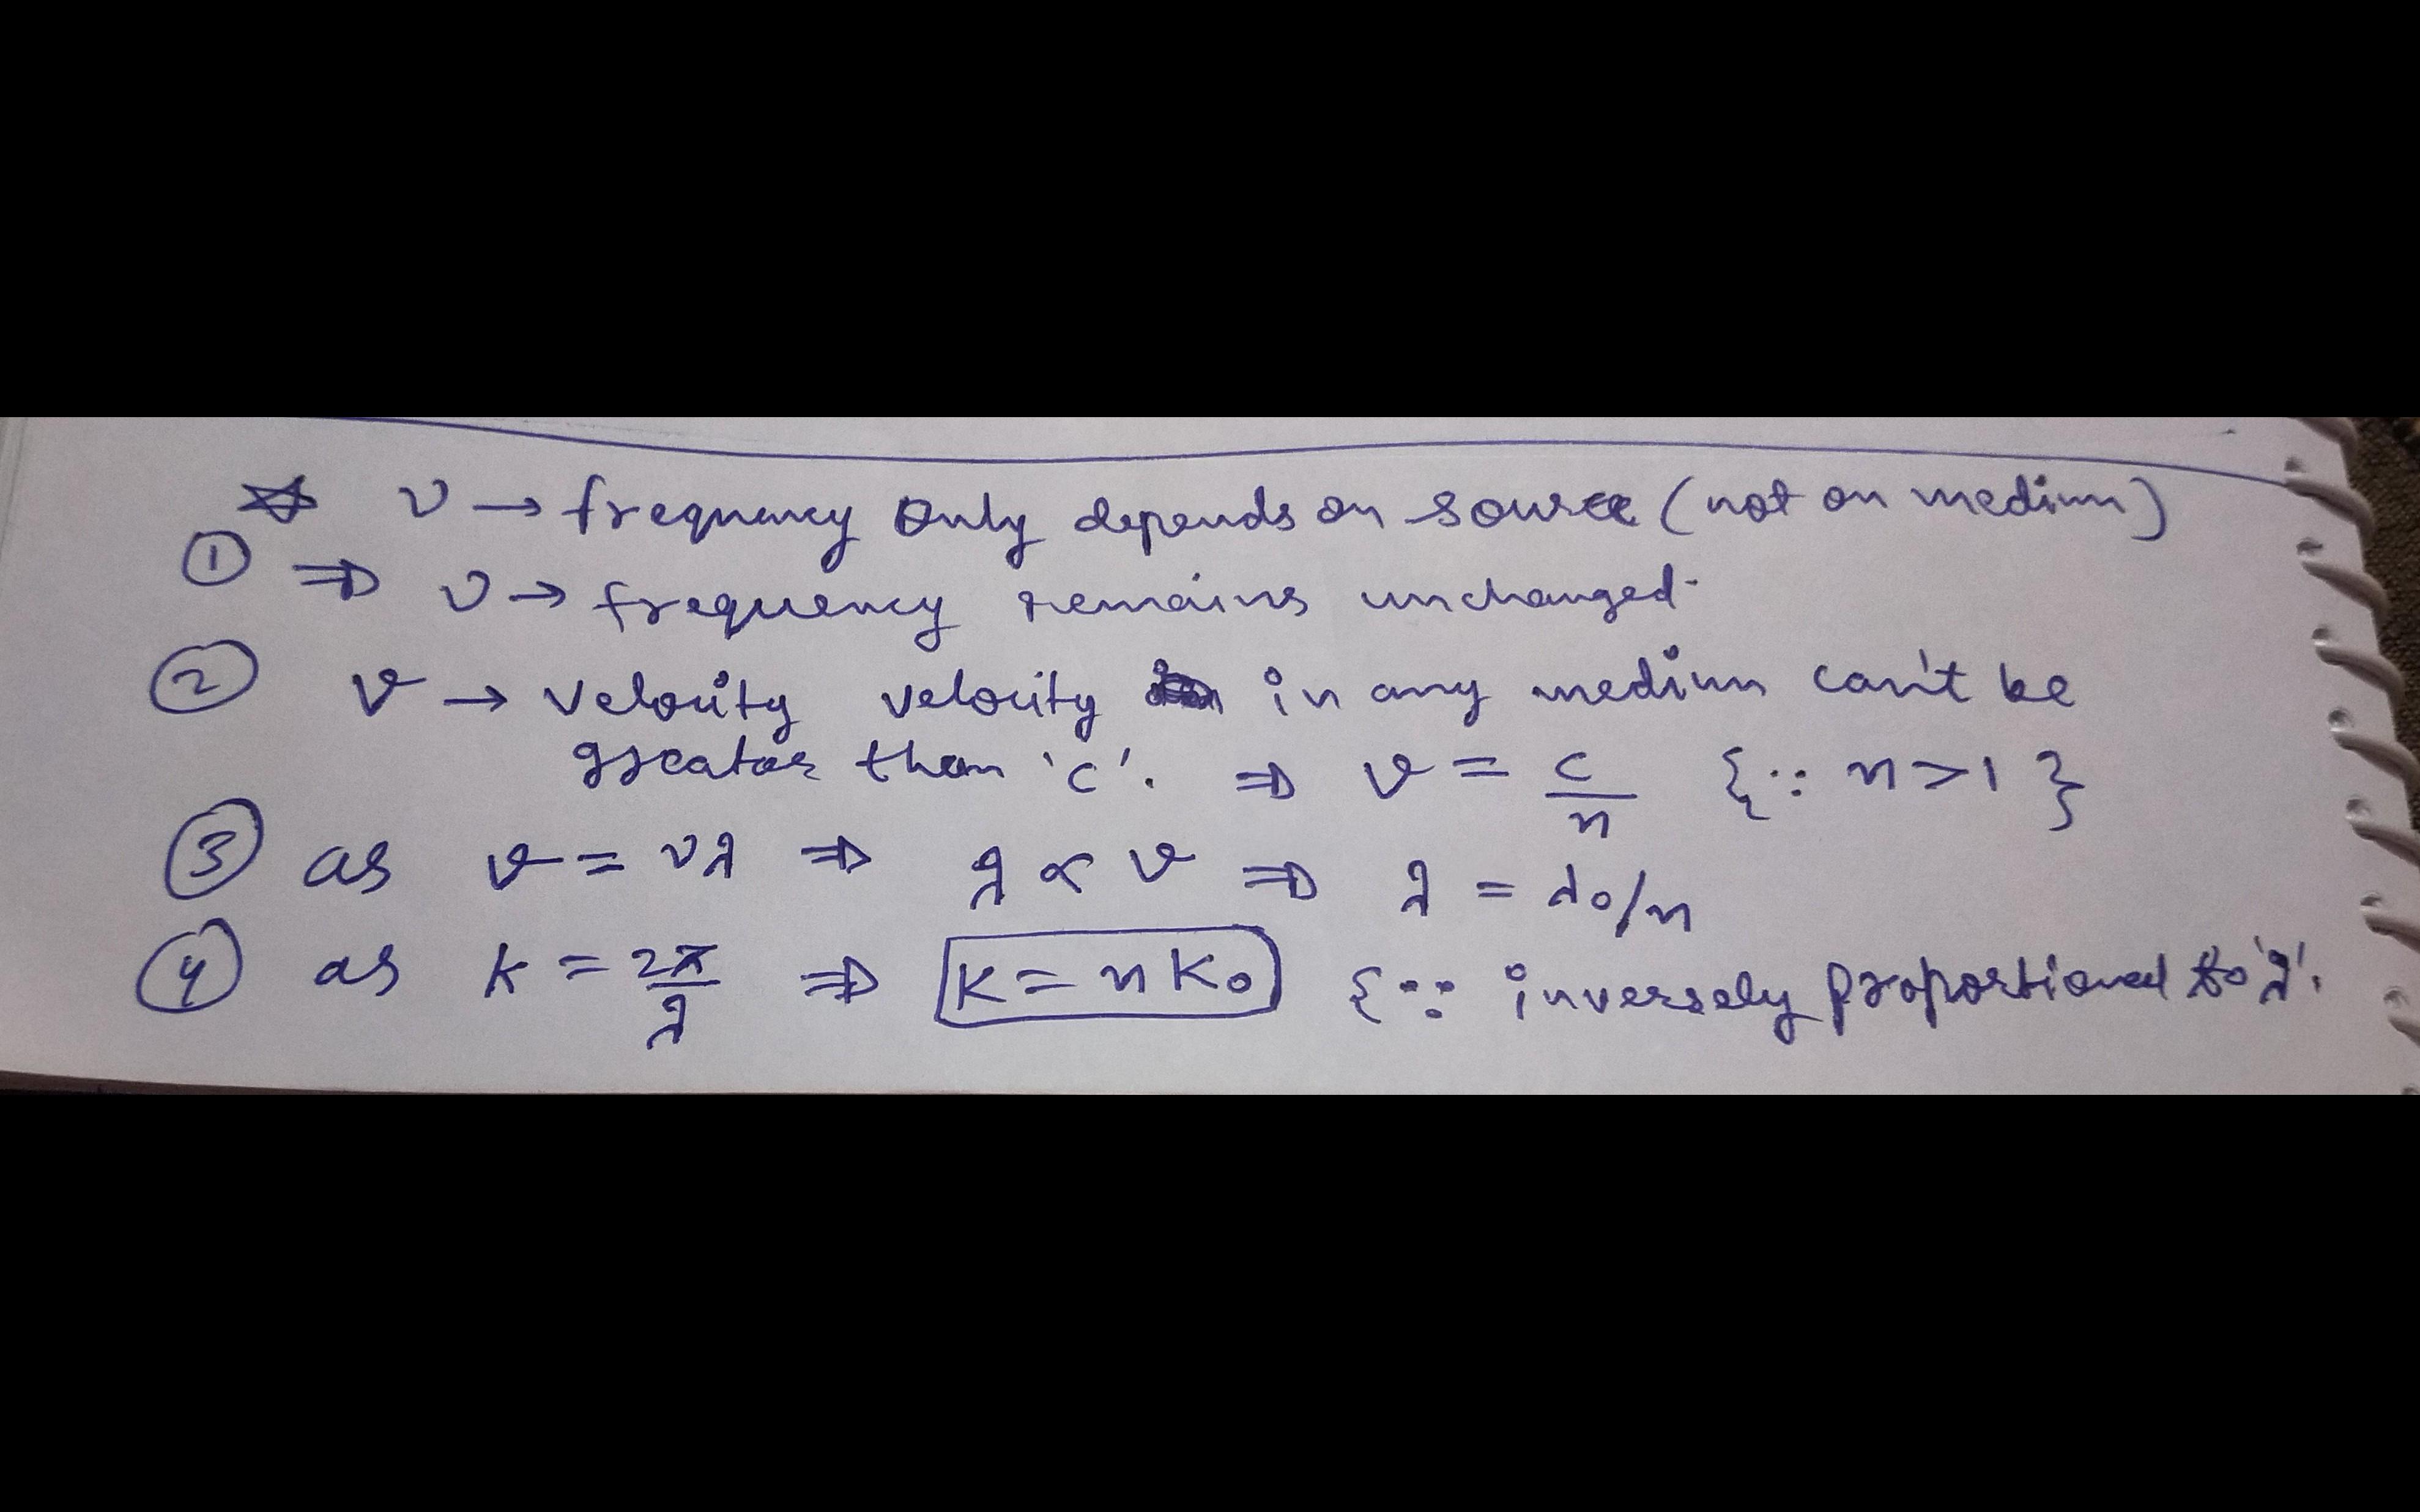 ☆ ν → frequency only depends on source (not on medium)
① ⇒ ν → frequency remains unchanged.
② v → velocity velocity in any medium can't be
greater than 'c'. ⇒ v = c/n {∵ n > 1}
③ as v = νλ ⇒ λ ∝ v ⇒ λ = λ₀/n
④ as k = 2π/λ ⇒ K = n K₀ {∵ inversely proportional to 'λ'.